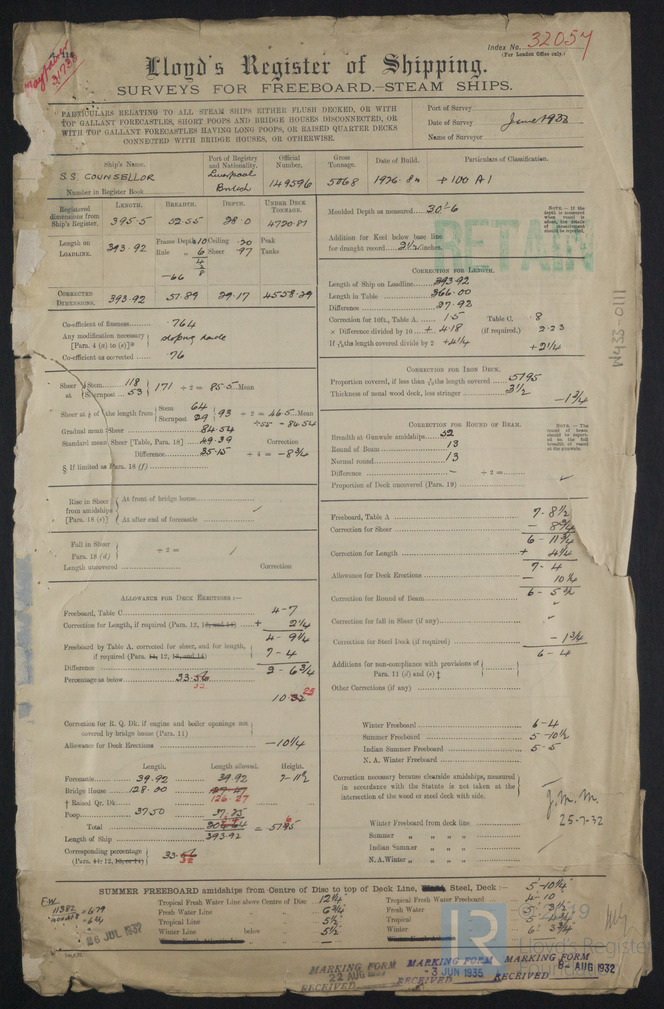 Index No. 32057
(For London Office only.)
Lloyd's Register of Shipping.
SURVEYS FOR FREEBOARD.—STEAM SHIPS.
PARTICULARS RELATING TO ALL STEAM SHIPS EITHER FLUSH DECKED, OR WITH
TOP GALLANT FORECASTLES, SHORT POOPS AND BRIDGE HOUSES DISCONNECTED, OR
WITH TOP GALLANT FORECASTLES HAVING LONG POOPS, OR RAISED QUARTER DECKS
CONNECTED WITH BRIDGE HOUSES, OR OTHERWISE.
Port of Survey
Date of Survey June 1932
Name of Surveyor
Ship's Name. Port of Registry and Nationality. Official Number. Gross Tonnage. Date of Build. Particulars of Classification.
S.S. COUNSELLOR Liverpool British 149596 5068 1926-8 +100 A1
Number in Register Book
Registered dimensions from Ship's Register. LENGTH. 395.5 BREADTH. 52.55 DEPTH. 28.0 UNDER DECK TONNAGE. 4720.81
Length on LOADLINE. 393.92 Frame Depth 10 Ceiling .20 Peak Tanks
Rule 6 Sheer .97
-66
CORRECTED DIMENSIONS. 393.92 51.89 29.17 4558.29
Moulded Depth as measured 30'-6
Addition for Keel below base line
for draught record 2 1/2 inches.
NOTE.—If the depth is measured when vessel is afloat, the details of measurement should be reported.
RETAIN
W433-0111
Co-efficient of fineness .764
Any modification necessary [Para. 4 (a) to (e)]* sloping
Co-efficient as corrected .76
CORRECTION FOR LENGTH.
Length of Ship on Loadline 393.92
Length in Table 366.00
Difference 27.92
Correction for 10ft., Table A. 1.5 Table C. .8
× Difference divided by 10 + 4.18 (if required.) 2.23
If 6/10ths length covered divide by 2 +4 1/4 +2 1/4
Sheer at Stem 118 Sternpost 53 171 ÷ 2 = 85.5 Mean
Sheer at 1/8 of the length from Stem 64 Sternpost 29 93 ÷ 2 = 46.5 Mean
÷ .55 = 84.54
Gradual mean Sheer 84.54
Standard mean Sheer [Table, Para. 18] 49.39 Correction
Difference 35.15 ÷ 4 = -8 3/4
§ If limited as Para. 18 (f)
CORRECTION FOR IRON DECK.
Proportion covered, if less than 7/10ths length covered .5195
Thickness of usual wood deck, less stringer 3 1/2
-1 3/4
CORRECTION FOR ROUND OF BEAM.
Breadth at Gunwale amidships 52
Round of Beam 13
Normal round 13
Difference - ÷ 2 =
Proportion of Deck uncovered (Para. 19)
NOTE.—The round of beam should be reported on the full breadth of vessel at the gunwale.
Rise in Sheer from amidships [Para. 18 (e)] At front of bridge house
At after end of forecastle
Fall in Sheer Para. 18 (d) ÷ 2 =
Length uncovered Correction
Freeboard, Table A 7-8 1/2
Correction for Sheer - 8 3/4
6-11 3/4
Correction for Length + 4 1/4
7-4
Allowance for Deck Erections - 10 1/4
6-5 3/4
Correction for Round of Beam
Correction for fall in Sheer (if any)
Correction for Steel Deck (if required) - 1 3/4
6-4
Additions for non-compliance with provisions of Para. 11 (d) and (e) ‡
Other Corrections (if any)
ALLOWANCE FOR DECK ERECTIONS :—
Freeboard, Table C 4-7
Correction for Length, if required (Para. 12, 13, and 14) + 2 1/4
4-9 1/4
Freeboard by Table A. corrected for sheer, and for length, if required (Para. 11, 12, 13, and 14) 7-4
Difference 2-6 3/4
Percentage as below 33.56 32
10.32 25
Correction for R. Q. Dk. if engine and boiler openings not covered by bridge house (Para. 11)
Allowance for Deck Erections -10 1/4
Length. Length allowed. Height.
Forecastle 39.92 39.92 7-11 1/2
Bridge House 128.00 127.47 126.27
† Raised Qr. Dk.
Poop 37.50
Total = .5195
Length of Ship 393.92
Corresponding percentage (Para. 11, 12, 13, or 14) 33.56 32
Winter Freeboard 6-4
Summer Freeboard 5-10 1/2
Indian Summer Freeboard 5-5
N. A. Winter Freeboard
Correction necessary because clearside amidships, measured
in accordance with the Statute is not taken at the
intersection of the wood or steel deck with side.
J.M.M.
25-7-32
Winter Freeboard from deck line
Summer " " " "
Indian Summer " " "
N. A. Winter " " "
SUMMER FREEBOARD amidships from Centre of Disc to top of Deck Line, Wood, Steel, Deck :— 5'-10 1/4
Tropical Fresh Water Line above Centre of Disc 12 1/4 Tropical Fresh Water Freeboard 4-10
Fresh Water Line " " 6 3/4 Fresh Water " 5' 3 1/2
Tropical Line " " 5 1/2 Tropical " 5' 4 3/4
Winter Line below " 5 1/2 Winter " 6' 3 3/4
26 JUL 1932
MARKING FORM 22 AUG RECEIVED
MARKING FORM -3 JUN 1935 RECEIVED
MARKING FORM 8- AUG 1932 RECEIVED
© 2019
Lloyd's Register
Foundation